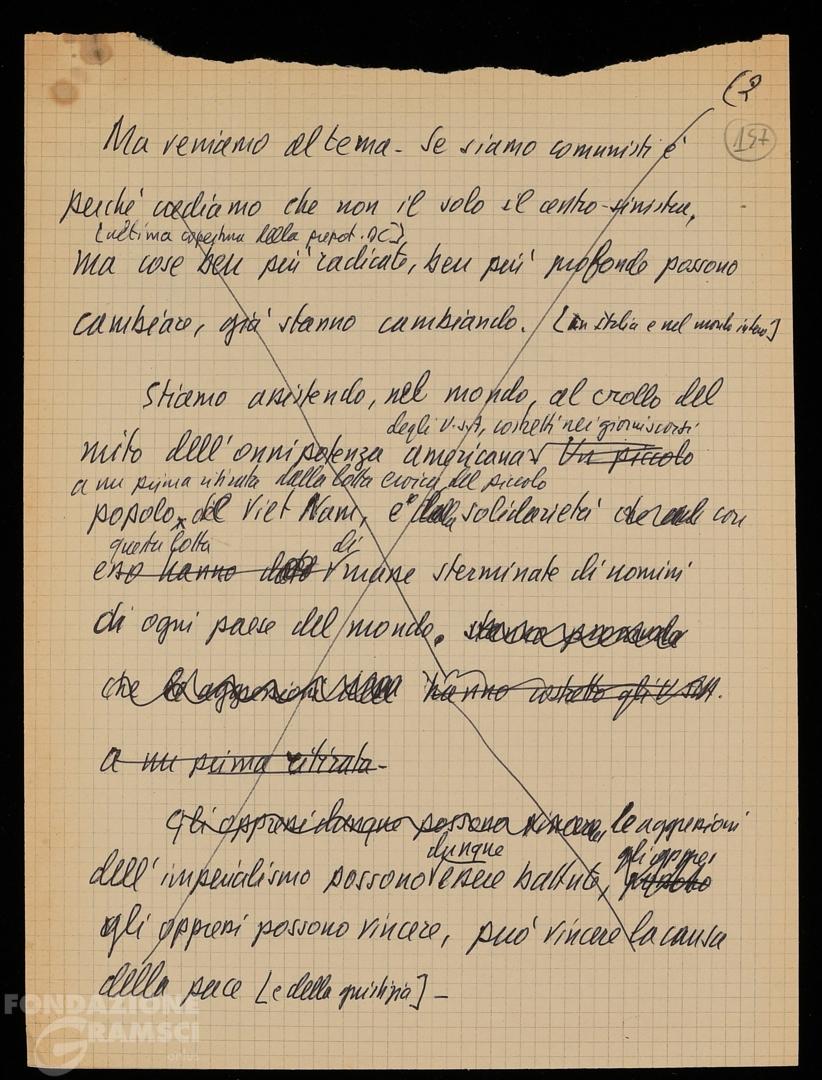 (2
157
Ma veniamo al tema - Se siamo comunisti è
perché crediamo che non il solo il centro-sinistra,
[ultima copertura della prepot. DC],
ma cose ben più radicate, ben più profonde possono
cambiare, già stanno cambiando. [in Italia e nel mondo intero]
Stiamo assistendo, nel mondo, al crollo del
degli U.S.A, costretti nei giorni scorsi
mito dell'onnipotenza americana Un piccolo
a una prima ritirata dalla lotta eroica del piccolo
popolo del Viet Nam, e dalla solidarietà con
questa lotta di
esso hanno dato masse sterminate di uomini
di ogni paese del mondo.
che le aggressioni hanno costretto gli USA.
a una prima ritirata -
Gli oppressi dunque possono vincere, le aggressioni
dunque gli oppressi
dell'imperialismo possono essere battute,
gli oppressi possono vincere, può vincere la causa
della pace [e della giustizia] -
FONDAZIONE
GRAMSCI
onlus